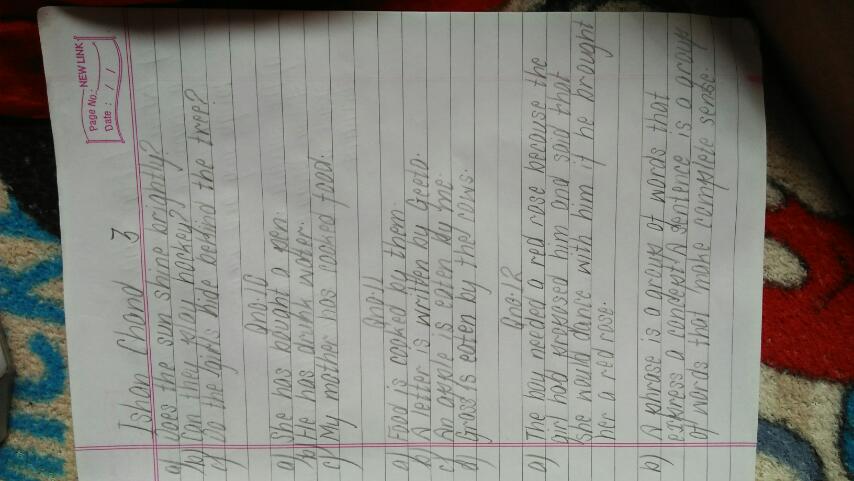 NEW LINK
Page No.:
Date: / /
Ishan Chand 3
a) Does the sun shine brightly?
b) Can they play hockey?
c) Do the girls hide behind the tree?
Qno.10
a) She has bought a pen.
b) He has drunk water.
c) My mother has cooked food.
Qno.11
a) Food is cooked by them.
b) A letter is written by Geeta.
c) An apple is eaten by me.
d) Grass is eaten by the cows.
Qno.12
a) The boy needed a red rose because the
girl had proposed him and said that
she would dance with him if he brought
her a red rose.
b) A phrase is a group of words that
express a concept. A sentence is a group
of words that make complete sense.